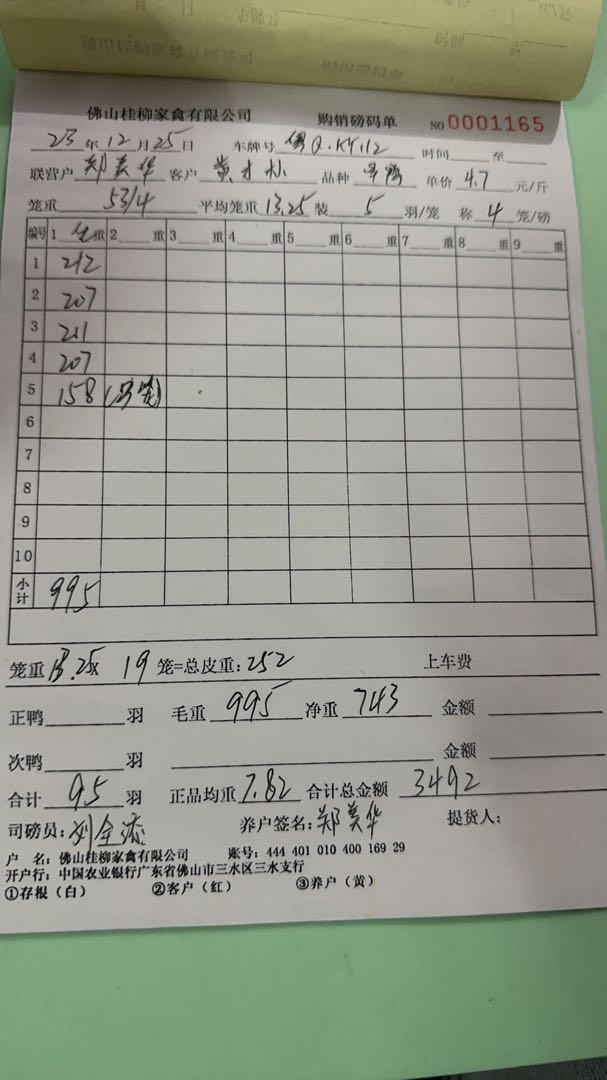 佛山桂柳家禽有限公司 购销磅码单 NO 0001165
23年12月25日 车牌号 Q.KY112 时间 至
联营户 郑美华 客户 黄才林 品种 单价 4.7 元/斤
笼重 53/4 平均笼重 13.25 装 5 羽/笼 称 4 笼/磅
编号 1 重 2 重 3 重 4 重 5 重 6 重 7 重 8 重 9 重
1 212
2 207
3 211
4 207
5 158 (3笼)
6
7
8
9
10
小计 995
笼重 13.25x 19 笼=总皮重: 252 上车费
正鸭 羽 毛重 995 净重 743 金额
次鸭 羽 金额
合计 95 羽 正品均重 7.82 合计总金额 3492
司磅员: 刘全添 养户签名: 郑美华 提货人:
户 名: 佛山桂柳家禽有限公司 账号: 444 401 010 400 169 29
开户行: 中国农业银行广东省佛山市三水区三水支行
①存根（白） ②客户（红） ③养户（黄）